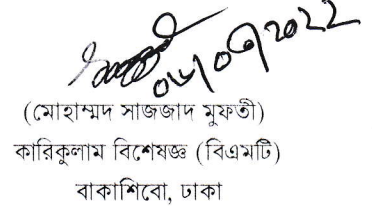 ০৬/০৩/২০২২
(মোহাম্মদ সাজজাদ মুফতী)
কারিকুলাম বিশেষজ্ঞ (বিএমটি)
বাকাশিবো, ঢাকা